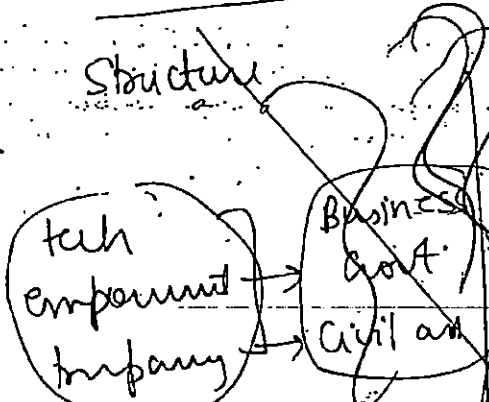 Structure
tech
empowerment
company
Business
Govt.
Civil